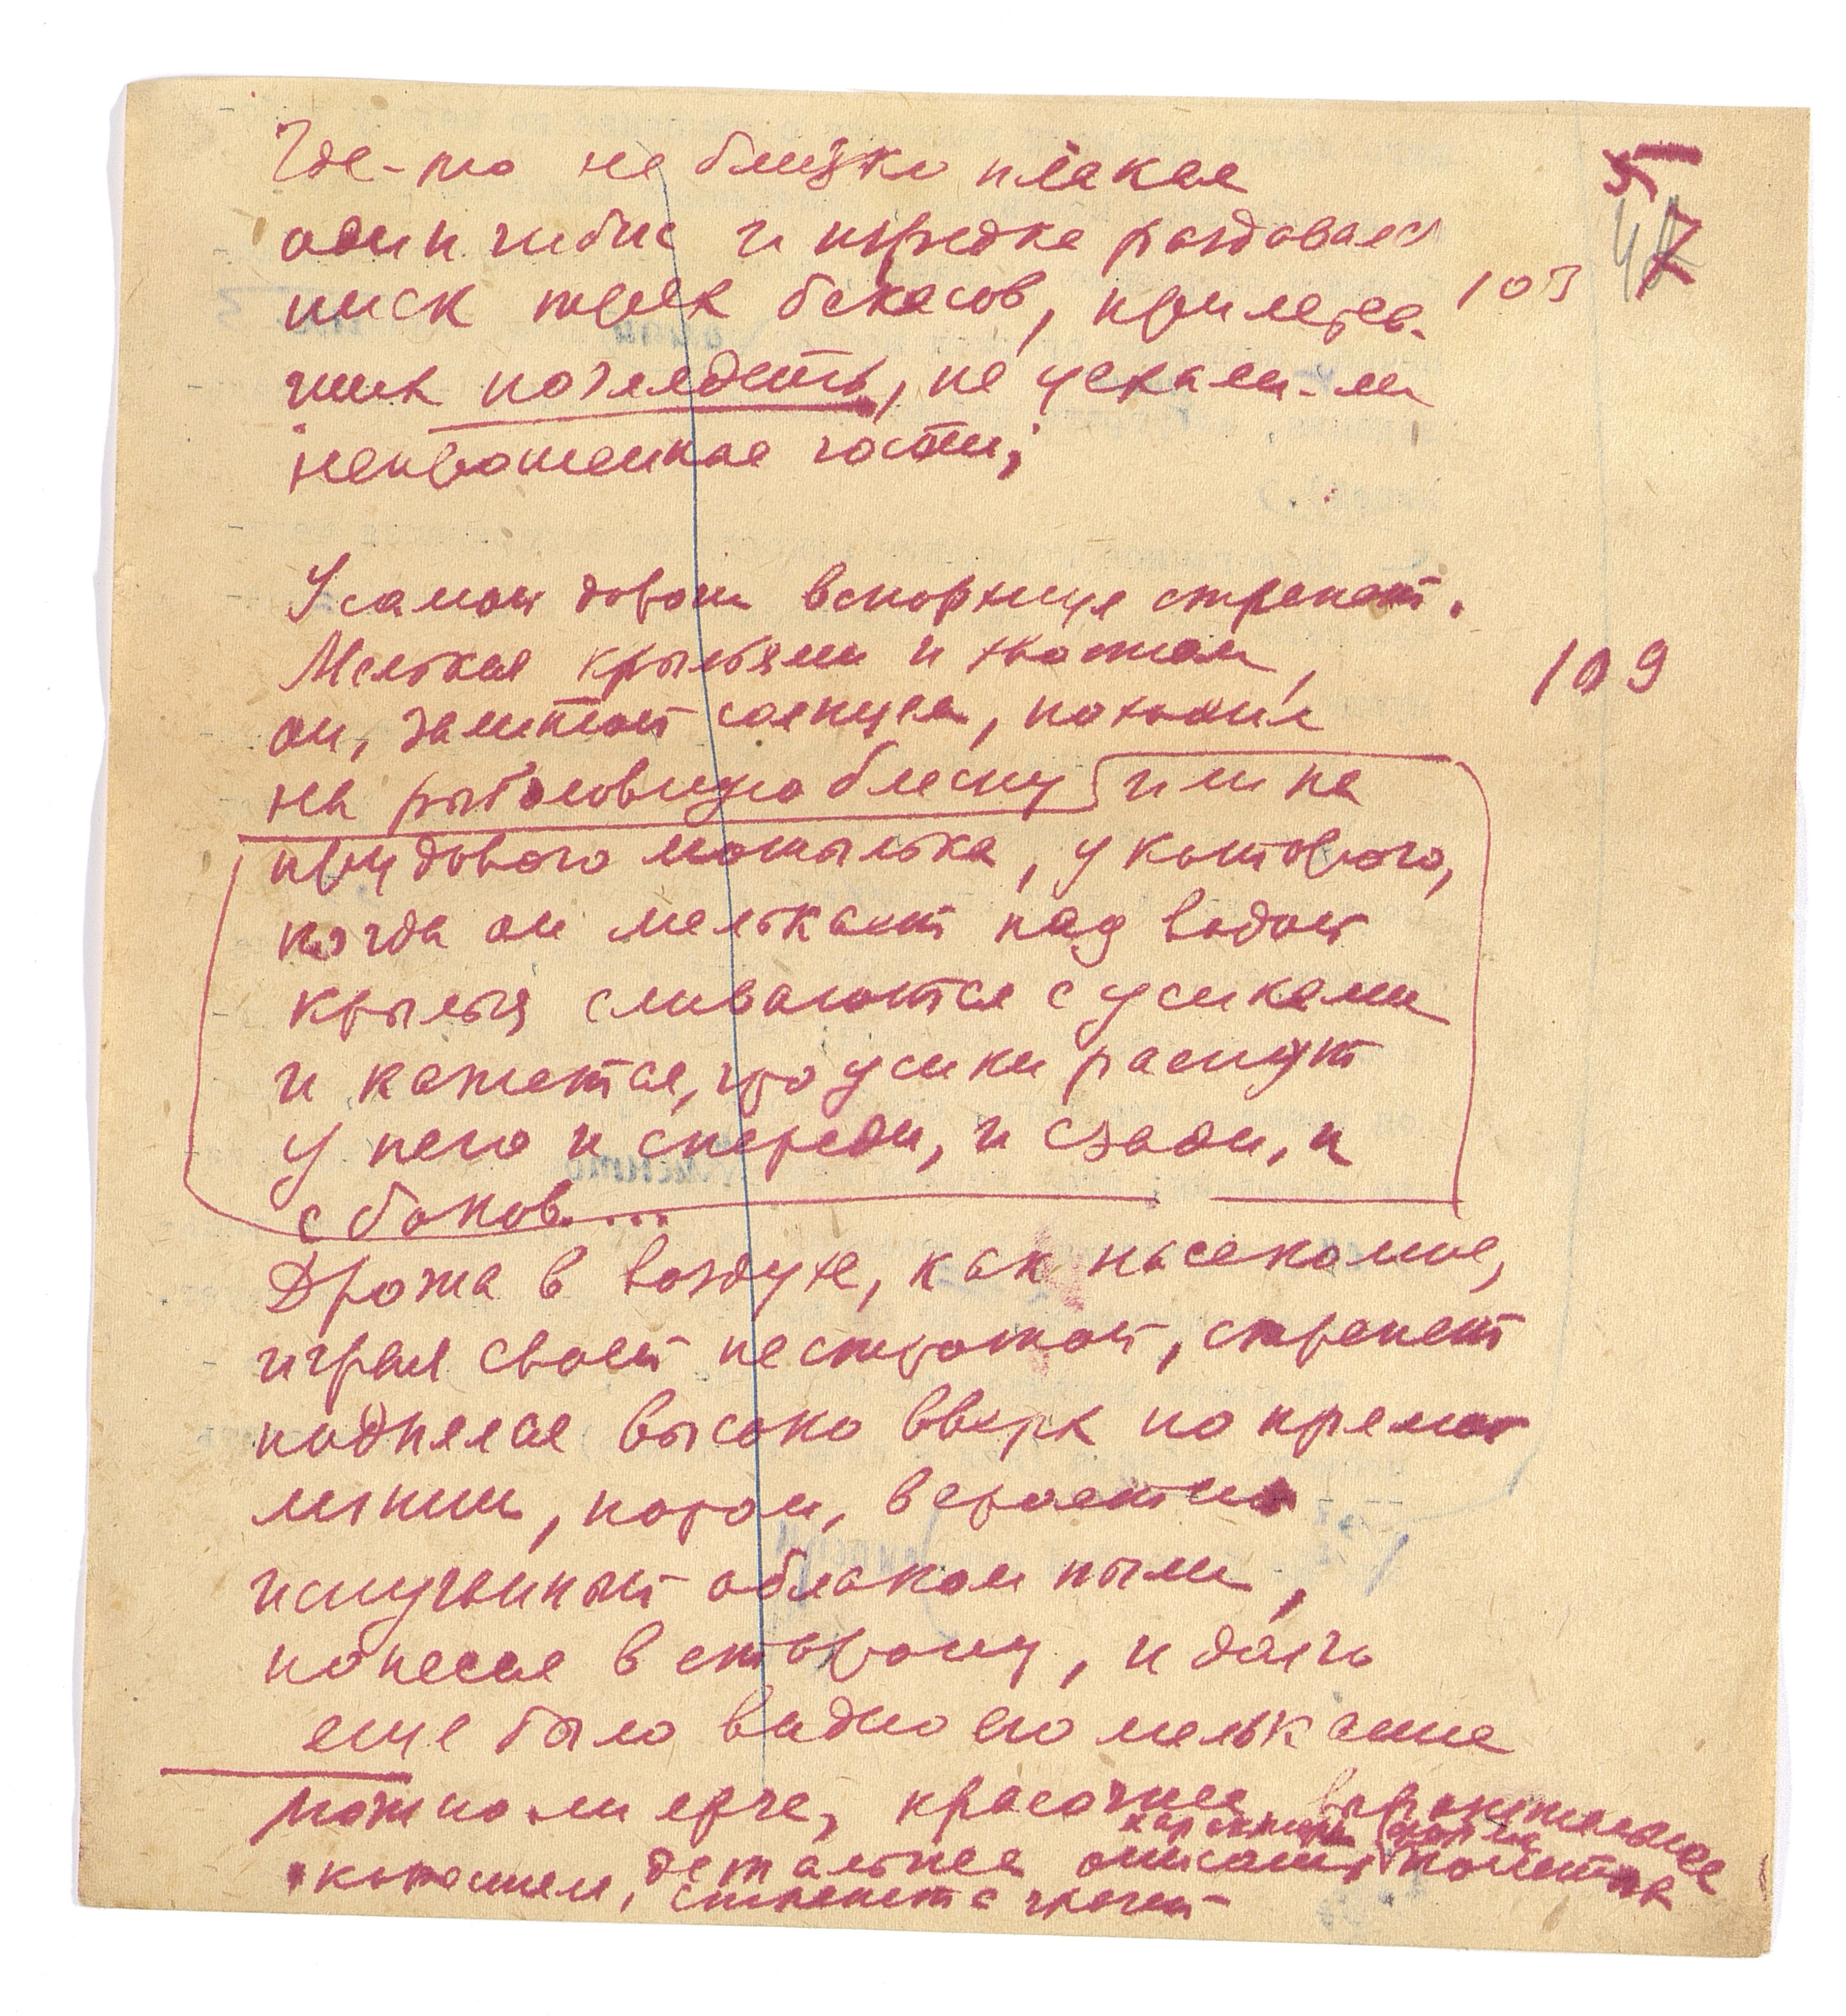 5
Где-то не близко плакал
один чибис и изредка раздавался
писк трех бекасов, прилетев-
103
47
ших поглядеть, не уехали-ли
непрошенные гости;
У самой дороги вспорхнул стрепет.
Мелькая крыльями и хвостом,
109
он, залитый солнцем, походил
на рыболовную блесну или на
прудового мотылька, у которого,
когда он мелькает над водой
крылья сливаются с усиками
и кажется, что усики растут
у него и спереди, и сзади, и
с боков....
Дрожа в воздухе, как насекомое,
играя своей пестротой, стрепет
поднялся высоко вверх по прямой
линии, потом, вероятно
испуганный облаком пыли,
понесся в сторону, и долго
еще было видно его мелькание
Можно ли ярче, красочнее, выразительнее
характер, форма
детальнее описать полет
стрепета